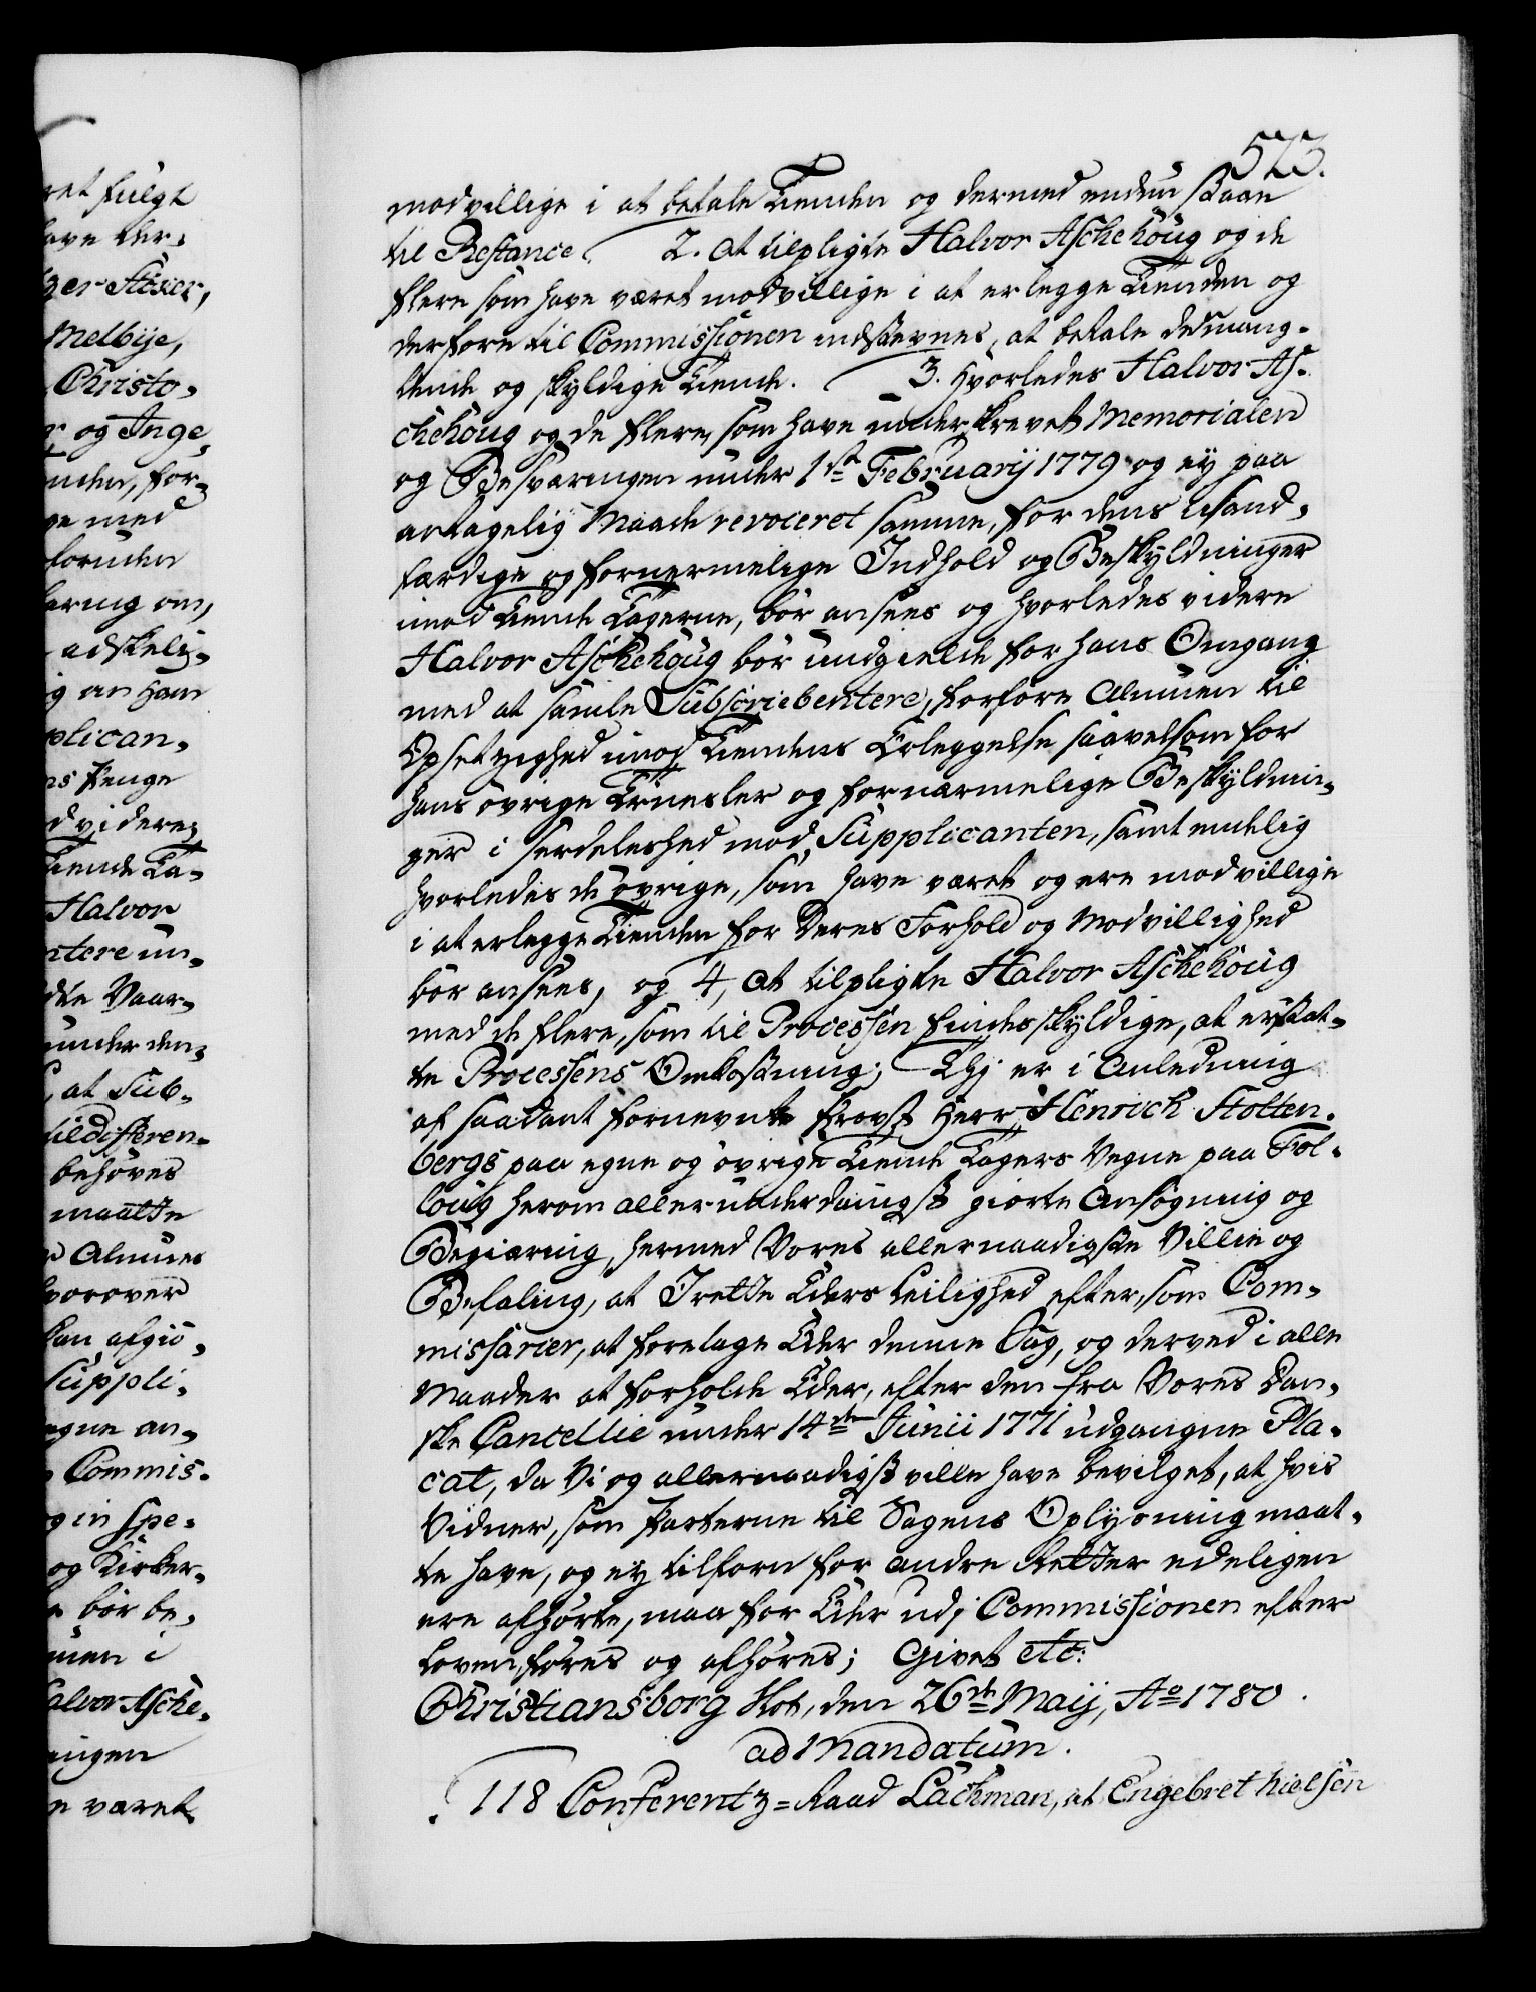 573.
modvillige i at betale Tienden og dermed endnu staae
til Restance 2. at tilpligte Halvor Aschehoug og de
flere som have været modvillige i at erlegge Tienden og
derfore til Commissionen indstevnes, at betale desmang-
lende og skyldige Tiende. 3. Hvorledes Halvor As-
chehoug og de flere, som have underskrevet Memorialen
og Besværingen under 1ste Februarij 1779 og ej paa
antagelig Maade revoceret samme, for dens usand-
færdige og fornermelige Indhold og Beskyldninger
imod Tiende Tagerne, bør ansees og hvorledes videre
Halvor Aschehoug bør undgielde for hans Omgang
med at samle Subscriebentere, forføre Almuen til
Opsetzighed imod Tiendens Erleggelse saavelsom for
hans øvrige og fornærmelige Beskyldnin-
ger i særdeleshed mod Supplicanten, samt endelig
hvorledes de øvrige, som have været og ere modvillige
i at erlegge Tienden for deres Forhold og Modvillighed
bør ansees, og 4, at tilpligte Halvor Aschehoug
med de flere, som til Processen findes skyldige, at erstat-
te Processens Omkostning; Thj er i Anledning
af saadant fornevnte Provst Herr Henrich Stolten-
bergs paa egne og øvrige Tiende Tagers Vegne paa Fol-
loug herom allerunderdanigst giorte Ansøgning og
Begiæring, hermed Vores allernaadigste Villie og
Befaling, at I rette Eders Leilighed efter, som Com-
missarier, at foretage Eder denne Sag, og derved i alle
Maader at forholde Eder, efter den fra Vores Dan-
ske Cancellie under 14de Junii 1771 udgangne Pla-
cat, da Vi og allernaadigst ville have bevilget, at hvis
Vidner, som Parterne til Sagens Oplysning maat-
te have, og ej tilforn for andre Retter edeligen
ere afhørte, maa for Eder udj Commissionen efter
Loven, føres og afhøres; Givet etc:
Christiansborg Slot, den 26de Maij, Ao 1780.
ad mandatum.
118 Conferentz=Raad Lachman, at Engebret Nielsen